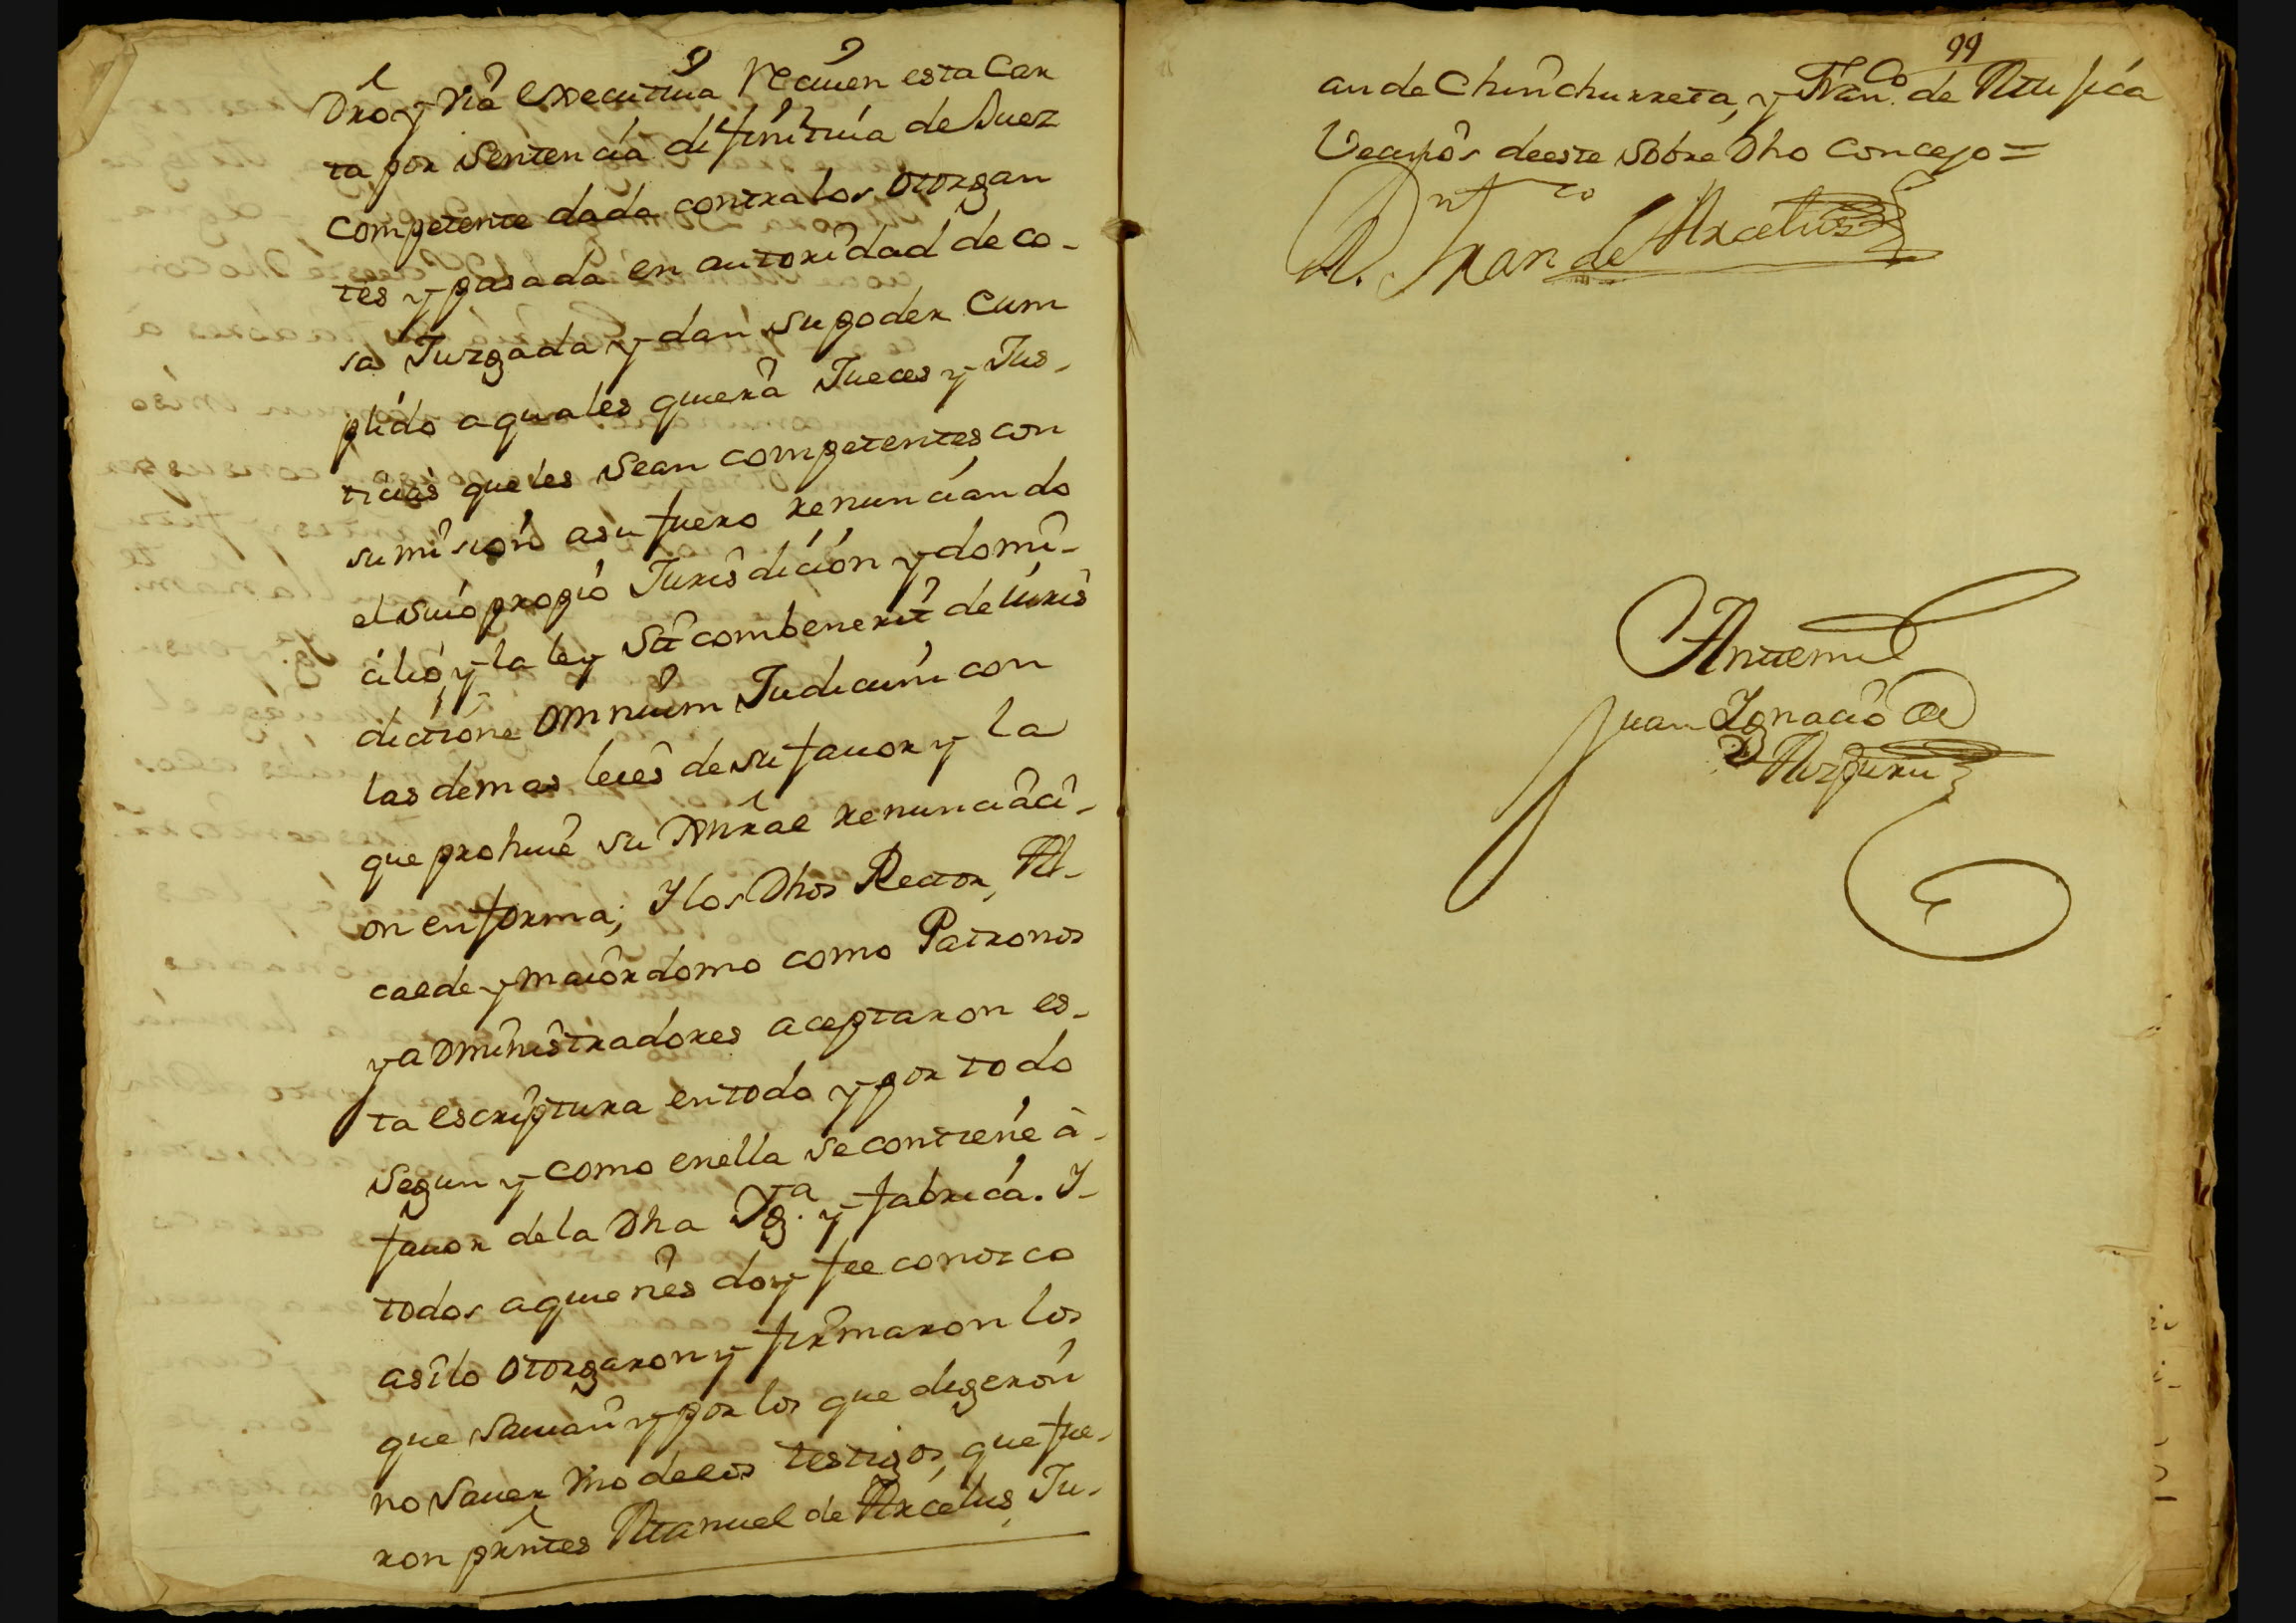 Dro y via executiua reciuen esta Car
ta por Sentencia difinitiua de Juez
competente dada contra los otorgan
tes y pasada en autoridad de co-
sa Juzgada y dan su poder Cum
plido a quales quiera Jueces y Jus-
ticias que les Sean competentes con
sumision a su fuero renunciando
el suio propio Jurisdicion y domi-
cilio y la ley Sit combenerit de iuris
dictione omnium Judicum con
las demas leies de su fauor y la
que prohiue su Gnral renunciaci-
on en forma; Y los Dhos Rector, Al-
calde y maiordomo como Patronos
y administradores aceptaron es-
ta escriptura en todo y por todo
Segun y como en ella se contiene à
fauor de la Dha Yg.ª y fabrica. Y-
todos a quienes doy fee conozco
asi lo otorgaron y firmaron los
que Sauian y por los que digeron
no Sauer vno de los testigos, que fue-
ron prntes Manuel de Arcelus, Ju-
99
an de Chinchurreta, y Fran.co de Mugica
Vecinos de este Sobre Dho Concejo =
Juan de Arcelus
Ante mi
Juan Ygnacio de
Aizpuru